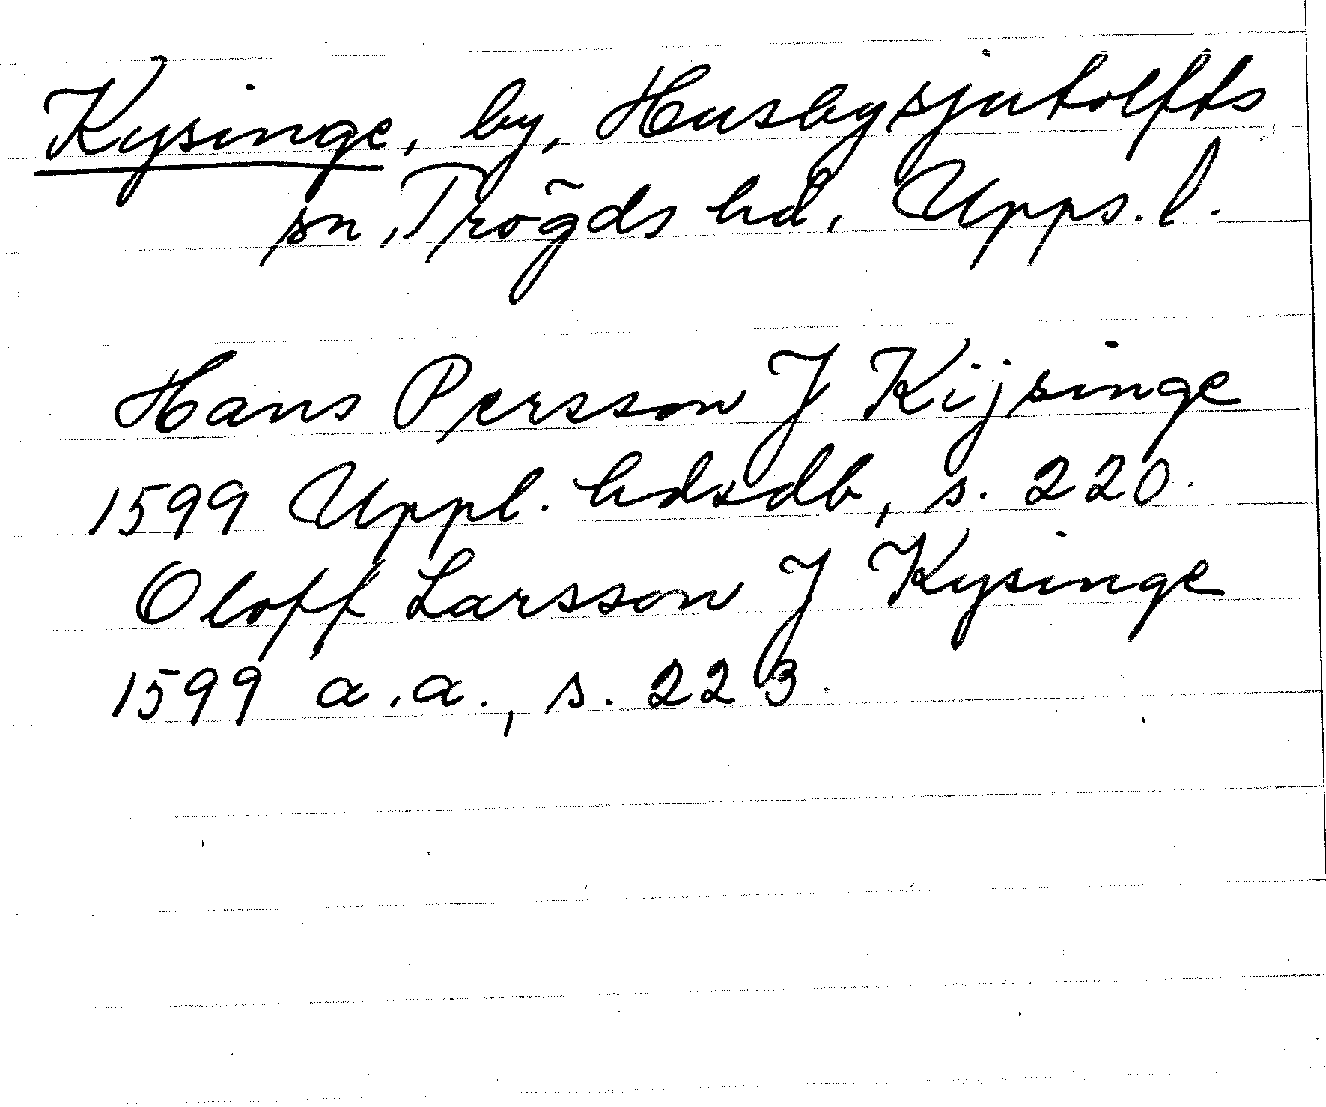 Kysinge, by, Husbysjutolfts
sn, Trögds hd, Upps. l.
Hans Persson J Kijsinge
1599 Uppl. hdsdb, s. 220.
Oloff Larsson J Kysinge
1599 a.a., s. 223.